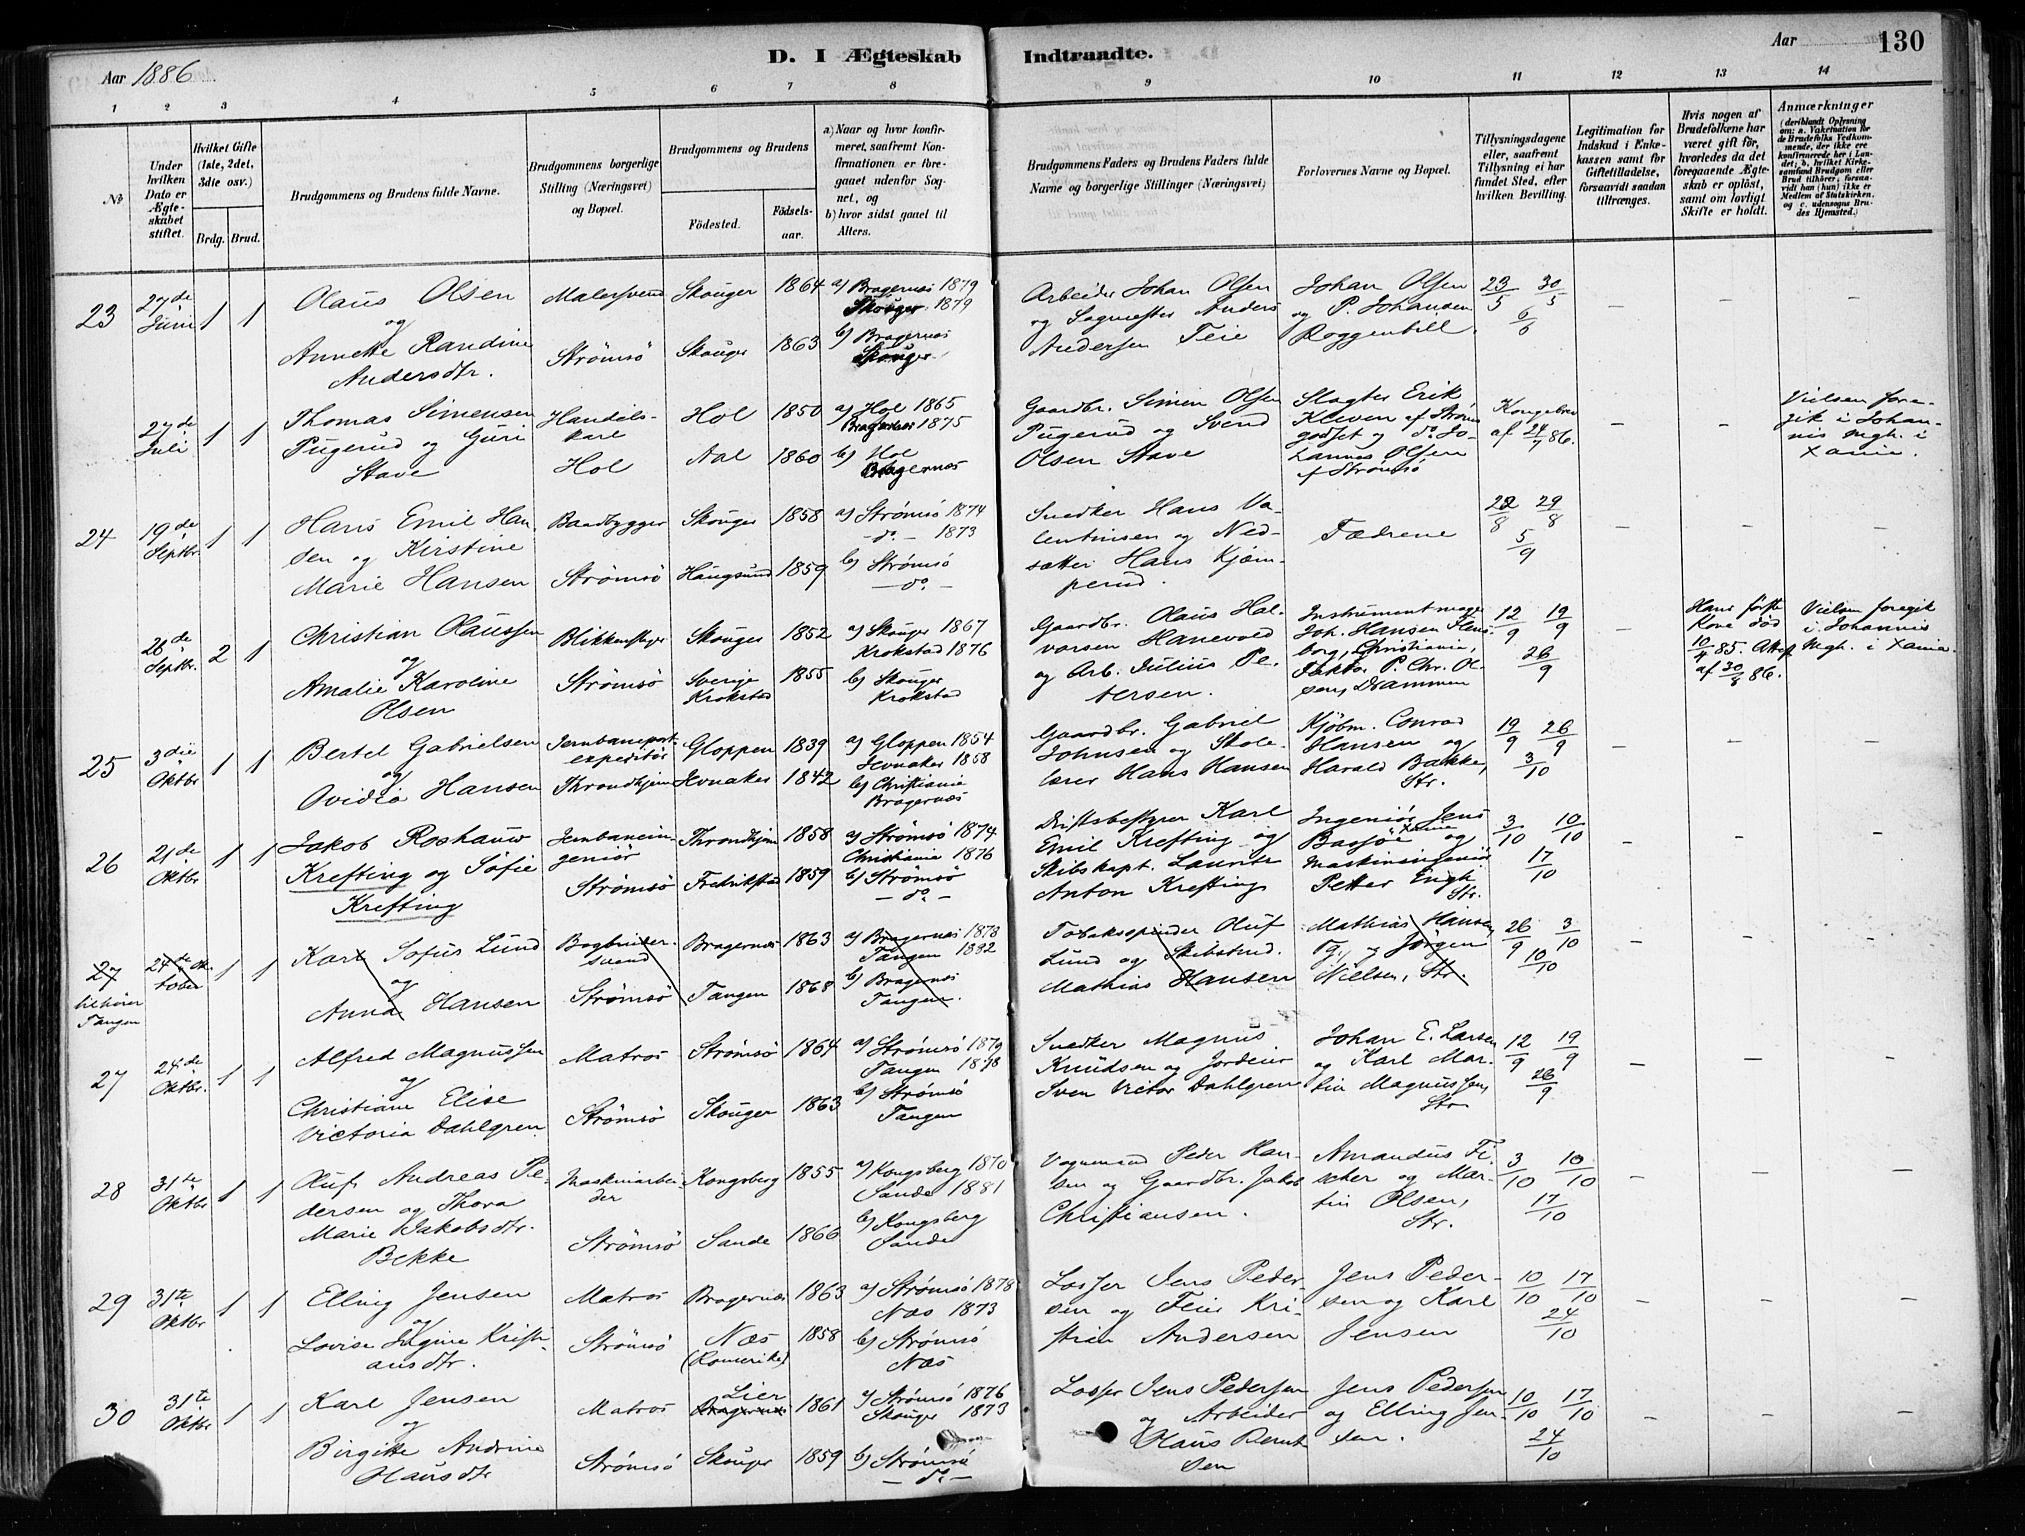 Aar 1886
D. I Ægteskab
Indtraadte.
Aar
130
1 2 3 4 5 6 7 8 9 10 11 12 13 14
№
Under hvilken Dato er Ægteskabet stiftet.
Hvilket Gifte (1ste, 2det, 3die osv.)
Brdg. Brud.
Brudgommens og Brudens fulde Navne.
Brudgommens borgerlige Stilling (Næringsvei) og Bopæl.
Brudgommens og Brudens
Födested.
Födsels-aar.
a) Naar og hvor konfirmeret, saafremt Konfirmationen er foregaaet udenfor Sognet, og
b) hvor sidst gaaet til Alters.
Brudgommens Faders og Brudens Faders fulde Navne og borgerlige Stillinger (Næringsvei)
Forlovernes Navne og Bopæl.
Tillysningsdagene eller, saafremt Tillysning ei har fundet Sted, efter hvilken Bevilling.
Legitimation for Indskud i Enkekassen samt for Giftetilladelse, forsaavidt saadan tiltrænges.
Hvis nogen af Brudefolkene har været gift før, hvorledes da det foregaaende Ægteskab er oplöst, samt om lovligt Skifte er holdt.
Anmærkninger
23 27de Juni 1 1
Olaus Olsen
og
Annette Randine
Andersdtr.
Malersvend
Strömsö
Skouger 1864
Skouger 1863
a) Bragernæs 1879
Skouger 1879
b) Bragernæs
Skouger
Arbeider Johan Olsen
og Sagmester Anders
Andersen Teie
Johan Olsen
og P. Johansen
Roggenbill.
23/5 30/5
6/6
27de Juli 1 1
Thomas Simensen
Pugerud og Guri
Stave
Handels-
karl
Hol
Hol 1850
Aal 1860
a) Hol 1865
Bragernæs 1875
b) Hol
Bragernæs
Gaardbr. Simen Olsen
Pugerud og Svend
Olsen Stave
Slagter Erik
Kleven af Ström
godset og do. Jo-
hannes Olsen
af Strömsö
Kongebrev
af 24/7 86.
Vielsen fore-
gik i Johan-
nis Mgh. i
Xania.
24 19de Septbr. 1 1
Hans Emil Han-
sen og Kirstine
Marie Hansen
Baadbygger
Strömsö
Skouger 1858
Haugsund 1859
a) Strömsö 1874
— do. — 1873
b) Strömsö
— do. —
Snedker Hans Va-
lentinsen og Ned-
sætter Hans Kjæm-
perud.
Fædrene
22/8 29/8
5/9
26de Septbr. 2 1
Christian Olaussen
og
Amalie Karoline
Olsen
Blikkenslager
Strömsö
Skouger 1852
Sverige
Krokstad
1855
a) Skouger 1867
Krokstad 1876
b) Skouger
Krokstad
Gaardbr. Olaus Hal-
vorsen Hanevold
og Arb. Julius Pe-
tersen.
Instrumentmager
Joh. Hansen Flens-
borg, Christiania,
Faktor P. Chr. Ol-
sen, Drammen
12/9 19/9
26/9
Hans förste
Kone död
10/4 85. Attest
af 30/8 86.
Vielsen foregik
i Johannis
Mgh. i Xania.
25 3die Oktbr 1 1
Bertel Gabrielsen
og
Ovidia Hansen
Jernbaneport-
expeditör
Throndhjem
Gloppen 1839
Jevnaker 1842
a) Gloppen 1854
Jevnaker 1858
b) Christiania
Bragernæs
Gaardbr. Gabriel
Johnsen og Skole-
lærer Hans Hansen
Kjöbm. Conrad
Hansen og
Harald Bakke,
Str.
19/9 26/9
3/10
26 21de Oktbr 1 1
Jakob Roshauw
Krefting og Sofie
Krefting
Jernbanein-
geniör
Strömsö
Throndhjem 1858
Fredrikstad 1859
a) Strömsö 1874
Christiania 1876
b) Strömsö
— do. —
Driftsbestyrer Karl
Emil Krefting og
Skibskapt. Lauritz
Anton Krefting
Ingeniör Jens
Basjöe Xania og
Maskiningeniör
Petter Engh
Str.
3/10 10/10
17/10
27 24de Oktober 1 1
tilhörer
Tangen
Karl Sofus Lund
og
Anna Hansen
Bogbinder-
svend
Strömsö
Bragernæs 1863
Tangen 1868
a) Bragernæs 1878
Tangen 1882
b) Bragernæs
Tangen.
Tobakspinder Oluf
Lund og Skibstmd.
Mathias Hansen
Mathias Hansen,
Tg., og Jörgen
Nielsen, Str.
26/9 3/10
10/10
27 24de Oktbr. 1 1
Alfred Magnussen
og
Christiane Elise
Victoria Dahlgren
Matros
Strömsö
Strömsö 1864
Skouger 1863
a) Strömsö 1879
Tangen 1878
b) Strömsö
Tangen
Snedker Magnus
Knudsen og Jordeier
Sven Victor Dahlgren
Johan E. Larsen
og Karl Mar-
tin Magnussen,
Str
12/9 19/9
26/9
28 31te Oktbr 1 1
Oluf Andreas Pe-
dersen og Thora
Marie Jakobsdtr.
Bekke
Maskinarbei-
der
Strömsö
Kongsberg 1855
Sande 1866
a) Kongsberg 1870
Sande 1881
b) Kongsberg
Sande
Vognmand Peder Han-
sen og Gaardbr. Jakob
Christiansen.
Amandus Fi-
scher og Mar-
tin Olsen,
Str.
3/10 10/10
17/10
29 31te Oktbr 1 1
Elling Jensen
og
Lovise Jugine Kristi-
ansdtr.
Matros
Strömsö
Bragernæs 1863
Næs
(Romerike)
1858
a) Strömsö 1878
Næs 1873
b) Strömsö
Næs
Losser Jens Peder-
sen og Feier Kri-
stian Andersen
Jens Peder-
sen og Karl
Jensen
10/10 17/10
24/10
30 31te Oktbr 1 1
Karl Jensen
og
Birgitte Andrine
Hansdtr
Matros
Strömsö
Lier
Bragernæs
1861
Skouger 1859
a) Strömsö 1876
Skouger 1873
b) Strömsö
— do. —
Losser Jens Pedersen
og Arbeider
Hans Bernt-
sen
Jens Pedersen
og Elling Jen-
sen.
10/10 17/10
24/10